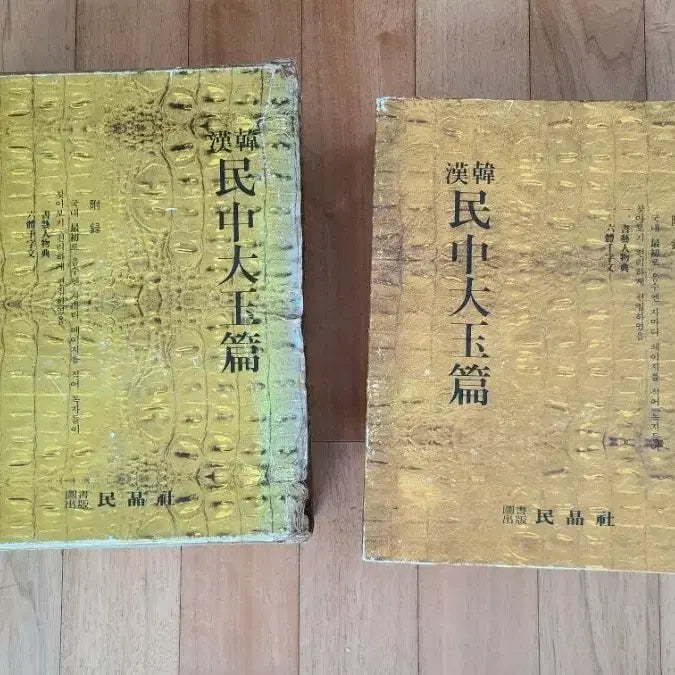 漢韓
民中大玉篇
附錄
국내 最初로 자마다 페이지를 적어 독자들이
찾아보기 편리하게 편집하였음
書藝人物典
六體千字文
圖書出版 民晶社
漢韓
民中大玉篇
국내 最初로 자마다 페이지를 적어
찾아보기 편리하게 편집하였음
一、書藝人物典
六體千字文
圖書出版 民晶社